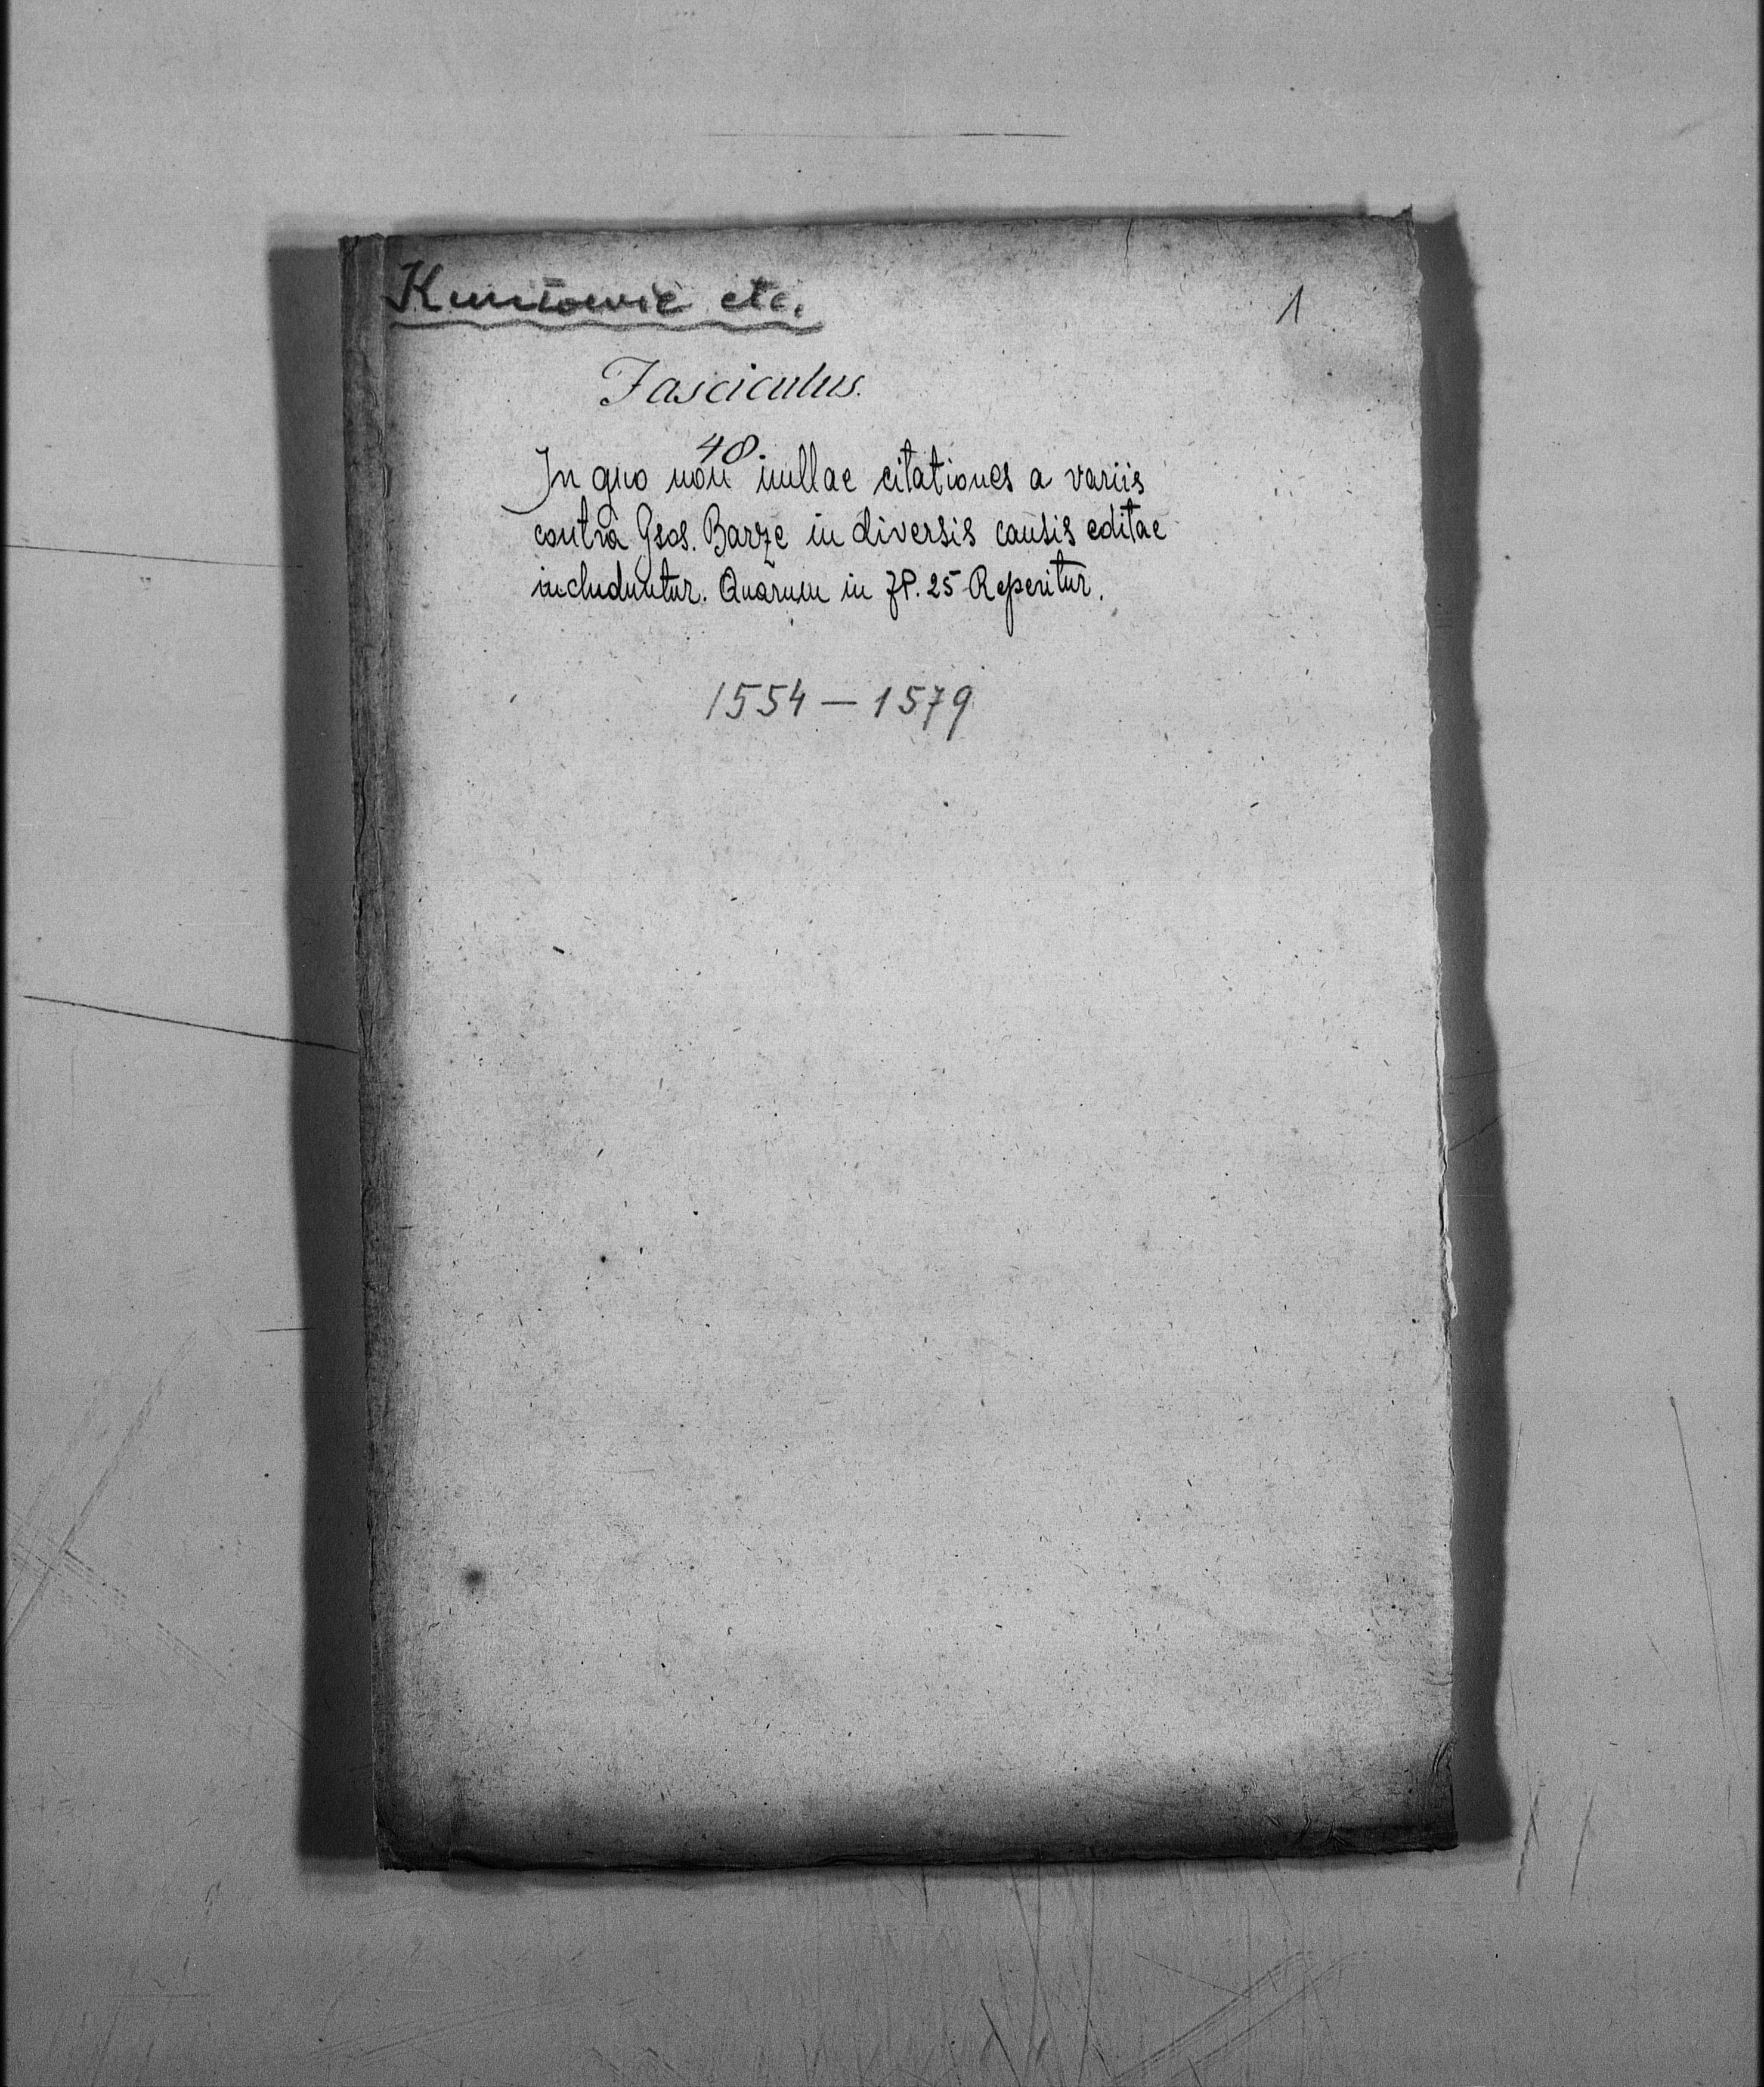 Kuniowie etc.
1
Fasciculus.
48.
In quo non nullae citationes a variis
contra Gsos. Barze in diversis causis editae
includuntur. Quarum in fP. 25 Reperitur.
1554 — 1579